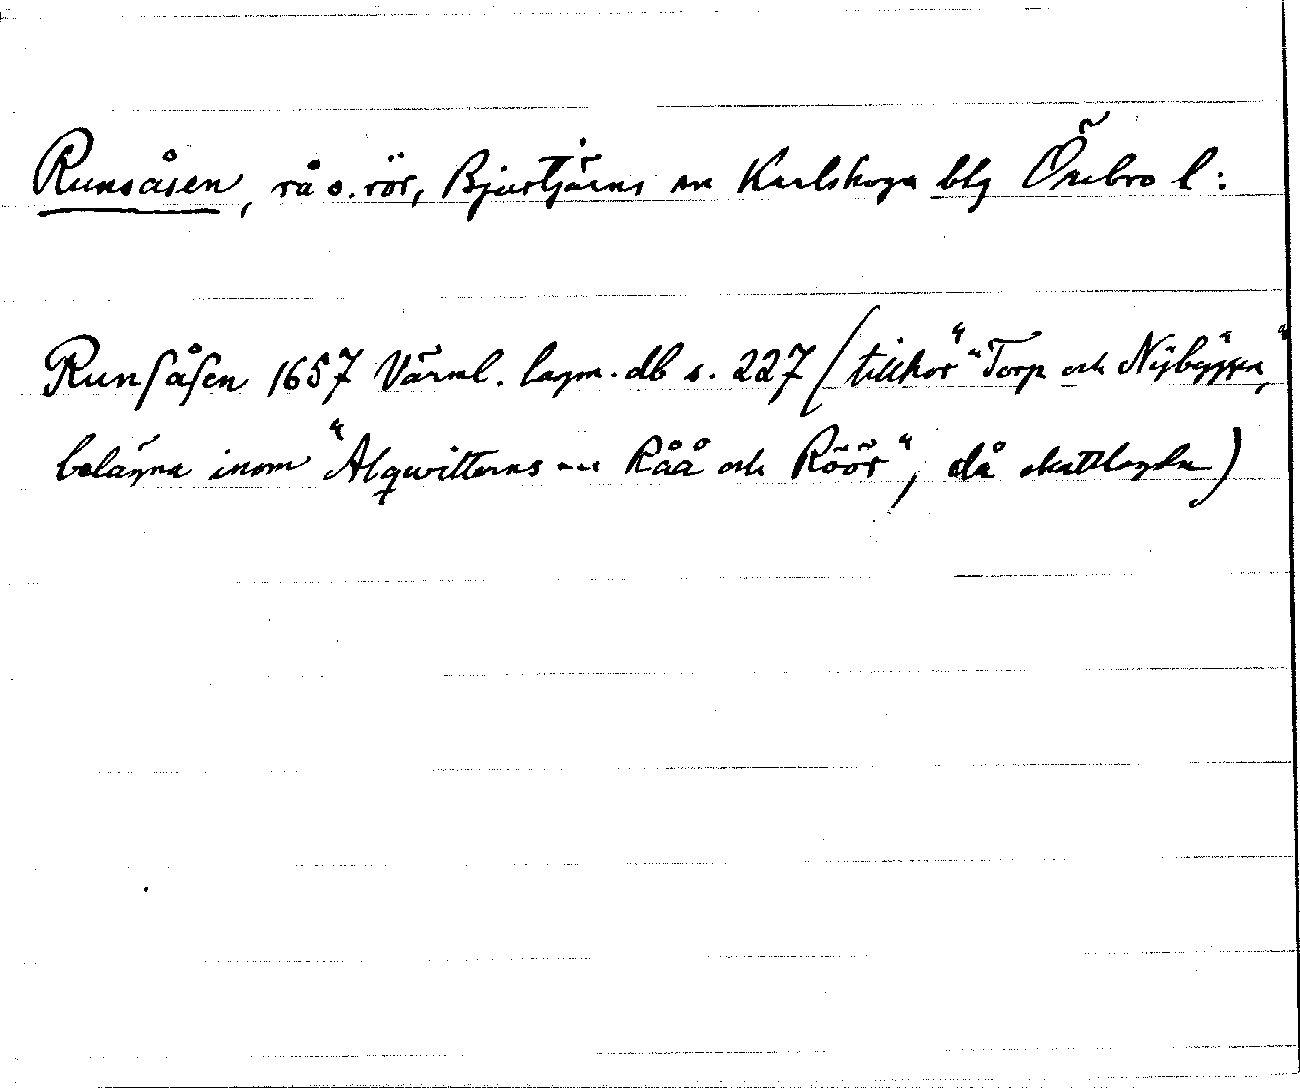 Runsåsen, rå o. rör, Bjurtjärns sn Karlskoga blg Örebro l:
Runsåsen 1657 Värml. lagm. db s. 227 (tillhör "Torp och Nÿbÿggen",
belägna inom "Alqwitterns Råå och Röör", då skattlagda)